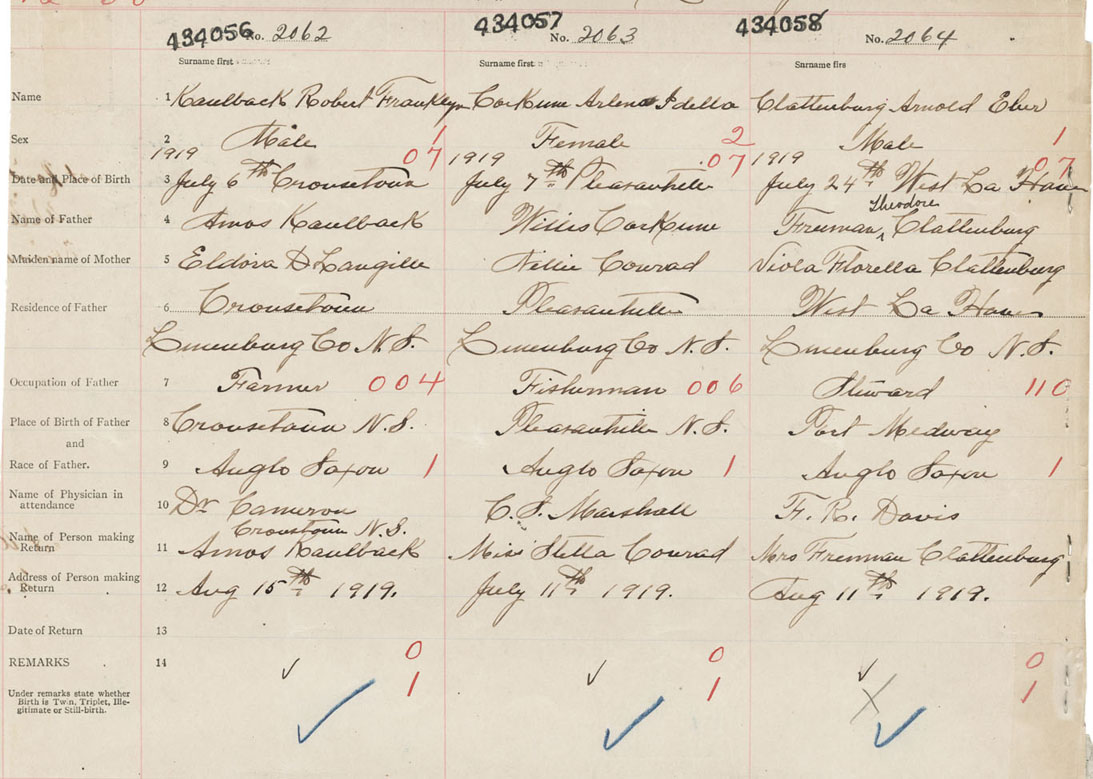 434056 No. 2062 434057 No. 2063 434058 No. 2064
Surname first Surname first Surname firs
Name 1 Kaulback Robert Franklyn Corkum Arlena Idella Clattenburg Arnold Eber
Sex 2 Male 1 Female 2 Male 1
1919 07 1919 07 1919 07
Date and Place of Birth 3 July 6th Crousetown July 7th Pleasantville July 24th West La Have
Theodore
Name of Father 4 Amos Kaulback Willis Corkum Freeman Clattenburg
Maiden name of Mother 5 Eldora D Langille Nellie Conrad Viola Florella Clattenburg
Residence of Father 6 Crousetown Pleasantville West La Have
Lunenburg Co N.S. Lunenburg Co N.S. Lunenburg Co N.S.
Occupation of Father 7 Farmer 004 Fisherman 006 Steward 110
Place of Birth of Father 8 Crousetown N.S. Pleasantville N.S. Port Medway
and
Race of Father. 9 Anglo Saxon 1 Anglo Saxon 1 Anglo Saxon 1
Name of Physician in attendance 10 Dr Cameron C. S. Marshall F. R. Davis
Croustown N.S.
Name of Person making Return 11 Amos Kaulback Miss Stella Conrad Mrs Freeman Clattenburg
Address of Person making Return 12 Aug 15th 1919. July 11th 1919. Aug 11th 1919.
Date of Return 13
REMARKS 14 0 0 0
1 1 1
Under remarks state whether
Birth is Twin, Triplet, Ille-
gitimate or Still-birth.